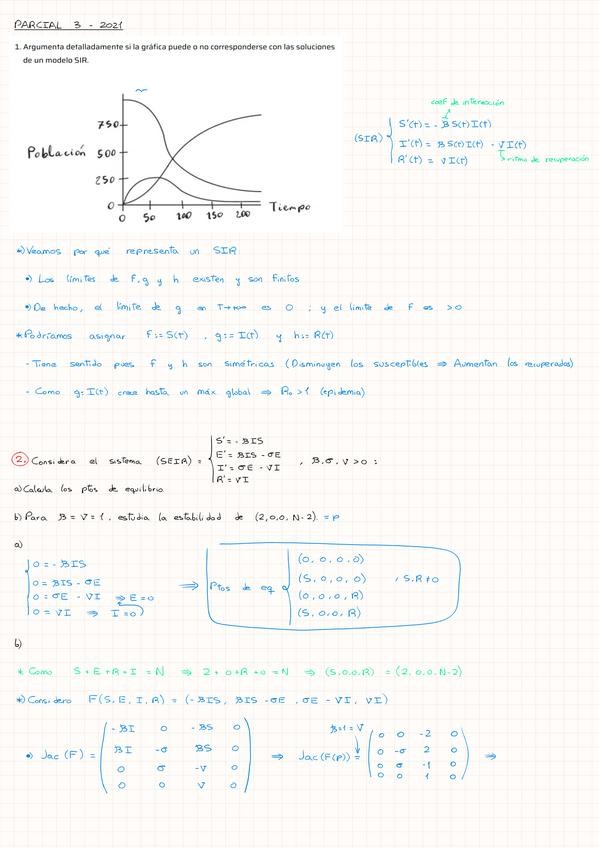 PARCIAL 3 - 2021
1. Argumenta detalladamente si la gráfica puede o no corresponderse con las soluciones
de un modelo SIR.
750
Población 500
250
0
0 50 100 150 200
Tiempo
coef de interacción
(SIR) S'(t) = - β S(t) I(t)
I'(t) = β S(t) I(t) - ν I(t)
R'(t) = ν I(t)
ritmo de recuperación
*) Veamos por qué representa un SIR
•) Los límites de f, g y h existen y son finitos
•) De hecho, el límite de g en T→+∞ es 0 ; y el límite de f es >0
* Podríamos asignar f := S(t) , g := I(t) y h := R(t)
- Tiene sentido pues f y h son simétricas (Disminuyen los susceptibles ⇒ Aumentan los recuperados)
- Como g: I(t) crece hasta un máx global ⇒ R₀ > 1 (epidemia)
2. Considera el sistema (SEIR) = { S' = - βIS
E' = βIS - σE
I' = σE - νI
R' = νI
, β, σ, ν > 0 :
a) Calcula los ptos de equilibrio
b) Para β = ν = 1, estudia la estabilidad de (2,0,0,N-2) = p
a)
0 = - βIS
0 = βIS - σE
0 = σE - νI ⇒ E = 0
0 = νI ⇒ I = 0
⇒ Ptos de eq { (0,0,0,0)
(S,0,0,0)
(0,0,0,R)
(S,0,0,R)
, S,R ≠ 0
b)
* Como S + E + R + I = N ⇒ 2 + 0 + R + 0 = N ⇒ (S,0,0,R) = (2,0,0,N-2)
*) Considero F(S, E, I, R) = (- βIS, βIS - σE, σE - νI, νI)
•) Jac (F) = ( -βI 0 -βS 0
βI -σ βS 0
0 σ -ν 0
0 0 ν 0 )
⇒ β=1=ν
Jac (F(p)) = ( 0 0 -2 0
0 -σ 2 0
0 σ -1 0
0 0 1 0 ) ⇒